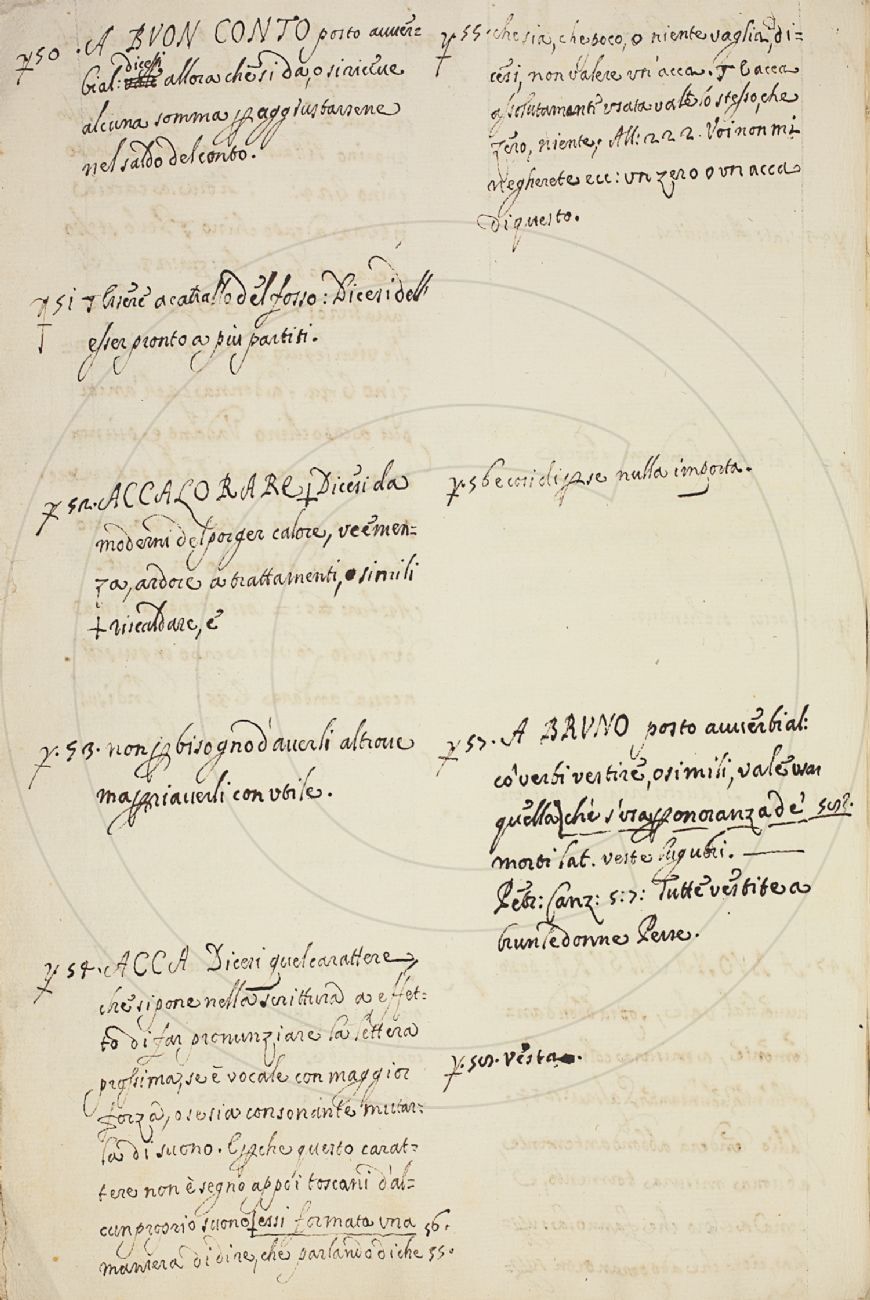 50. A BUON CONTO posto avver=
bial: dicesi allora che si dà, o si riceve
alcuna somma p aggiustarsene
nel saldo del conto.
51 Essere a cavallo del fosso: Dicesi dell
esser pronto a più partiti.
52. ACCALORARE Dicesi da
moderni del porger calore, veemen=
za, ardore a trattamenti, o simili
riscaldare, e
53. non p bisogno d'averli altrove
ma p riaverli con utile.
54. ACCA Dicesi quel carattere,
che si pone nella scrittura a effet=
to di far pronunziare la lettera
prossima, se è vocale con maggior
forza, o se sia consonante mutar=
la di suono. E pche questo carat=
tere non è segno app i toscani d'al=
cun proprio suono essi formata una 56.
maniera di dire, che parlando di che 55.
55. che sia, che poco, o niente vaglia, di=
cesi, non valere un'acca. E l'acca
assolutamente usata vale lo stesso, che
zero, niente, All: 222. Voi non mi
negherete ecc: un zero o un acca
di questo.
56 e così di p se nulla importa.
57. A BRUNO posto avverbial:
có verbi vestire, o simili, vale
quella che s'usa p onoranza de' 58.
morti lat. veste lugubri.
Petr: Canz: 5:7: Tutte vestite a
brun le donne Perse.
58. vesta.